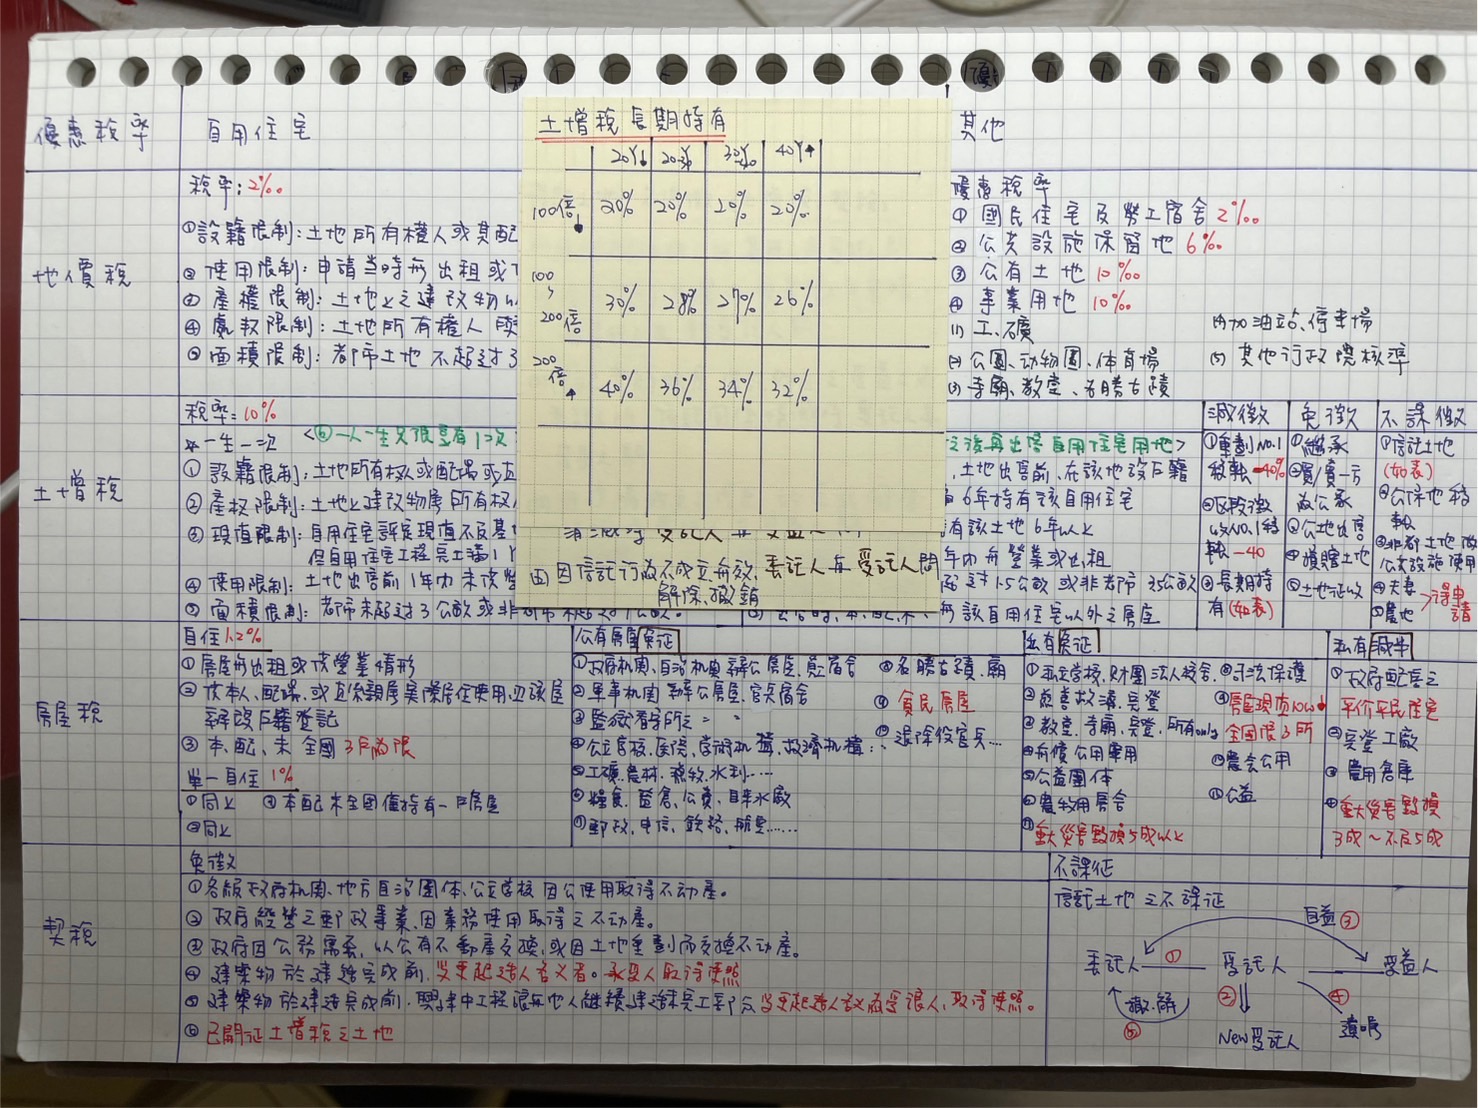 優惠稅率
自用住宅
其他
土增稅長期持有
20Y↓ 20-30 30Y-40 40Y↑
100倍↓ 20% 20% 20% 20%
100~200倍 30% 28% 27% 26%
200倍↑ 40% 36% 34% 32%
四因信託行為不成立、無效、委託人與受託人間
解除、撤銷
地價稅
稅率:2‰
①設籍限制:土地所有權人或其配
②使用限制:申請當時無出租或
③產權限制:土地上之建改物
④處數限制:土地所有權人
⑤面積限制:都市土地不超過3
優惠稅率
①國民住宅及勞工宿舍2‰
②公共設施保留地6‰
③公有土地10‰
④事業用地10‰
(1)工、礦
(2)公園、動物園、体育場
(3)寺廟、教堂、名勝古蹟
(4)加油站、停車場
(5)其他行政院核準
土增稅
稅率:10%
※一生一次
<⑥一人一生只限享有1次
之後再出售自用住宅用地>
①設籍限制:土地所有权人或配偶或直
②產权限制:土地上建改物屬所有权人
③現值限制:自用住宅評定現值不及基
但自用住宅工程完工滿1
④使用限制:土地出售前1年內未談營
⑤面積限制:都市未超過3公畝或非都市未超過7公畝。
土地出售前,在該地設戶籍
6年持有該自用住宅
有該土地6年以上
年內無營業或出租
超過1.5公畝或非都市3.5公畝
無該自用住宅以外之房屋
減徵
①重劃NO.1
移轉-40%
②區段徵
收NO.1移
轉-40
③長期持
有(如表)
免徵
①繼承
②賣/賣一方
為公家
③公地出售
④捐贈土地
⑤土地徵收
不課徵
①信託土地
(如表)
②公保地移
轉
③非都土地改
公共設施使用
④夫妻
⑤農地
>得申請
房屋稅
自住1.2%
①房屋無出租或供營業情形
②供本人、配偶、或直係親屬實際居住使用,並該屋
辦改戶籍登記
③本、配、未全國3戶為限
單一自住1%
①同上 ③本配未全國僅持有一戶房屋
②同上
公有房屋免征
①政府机関、自治机関辦公房屋、員宿舍
②軍事机関辦公房屋、官兵宿舍
③監獄看守所之〃 〃
④公立學校、医院、學術机構、救濟机構
⑤工礦、農林、漁牧、水利…
⑥糧食、鹽倉、公賣、自來水廠
⑦郵政、電信、鐵路、航空……
⑧名勝古蹟、廟
⑨貧民房屋
⑩退除役官兵…
私有免征
①私立學校、財團法人校舍
②慈善救濟、完登
③教堂、寺廟、完登、所有only
④無償公用軍用
⑤公益團体
⑥農牧用房舍
⑦重大災害毀損5成以上
⑧司法保護
⑨房屋現值10w↓
全國限3所
⑩農会公用
⑪公益
私有減半
①政府配售之
平价平民住宅
②完登工廠
③農用倉庫
④重大災害毀損
3成~不及5成
契稅
免徵
①各級政府机関、地方自治團体、公立學校因公使用取得不動產。
②政府經營之郵政事業,因業務使用取得之不動產。
③政府因公務需系,以公有不動產交換,或因土地重劃而交換不動產。
④建築物於建造完成前,変更起造人名义者。承受人取得使照
⑤建築物於建造完成前,興建中工程讓與他人継續建造未完工部分変更起造人名義為受讓人,取得使照。
⑥已開征土增稅之土地
不課征
信託土地之不課征
自益③
委託人 ① 受託人 受益人
②
New受託人
④
遺囑
撤.解
⑤